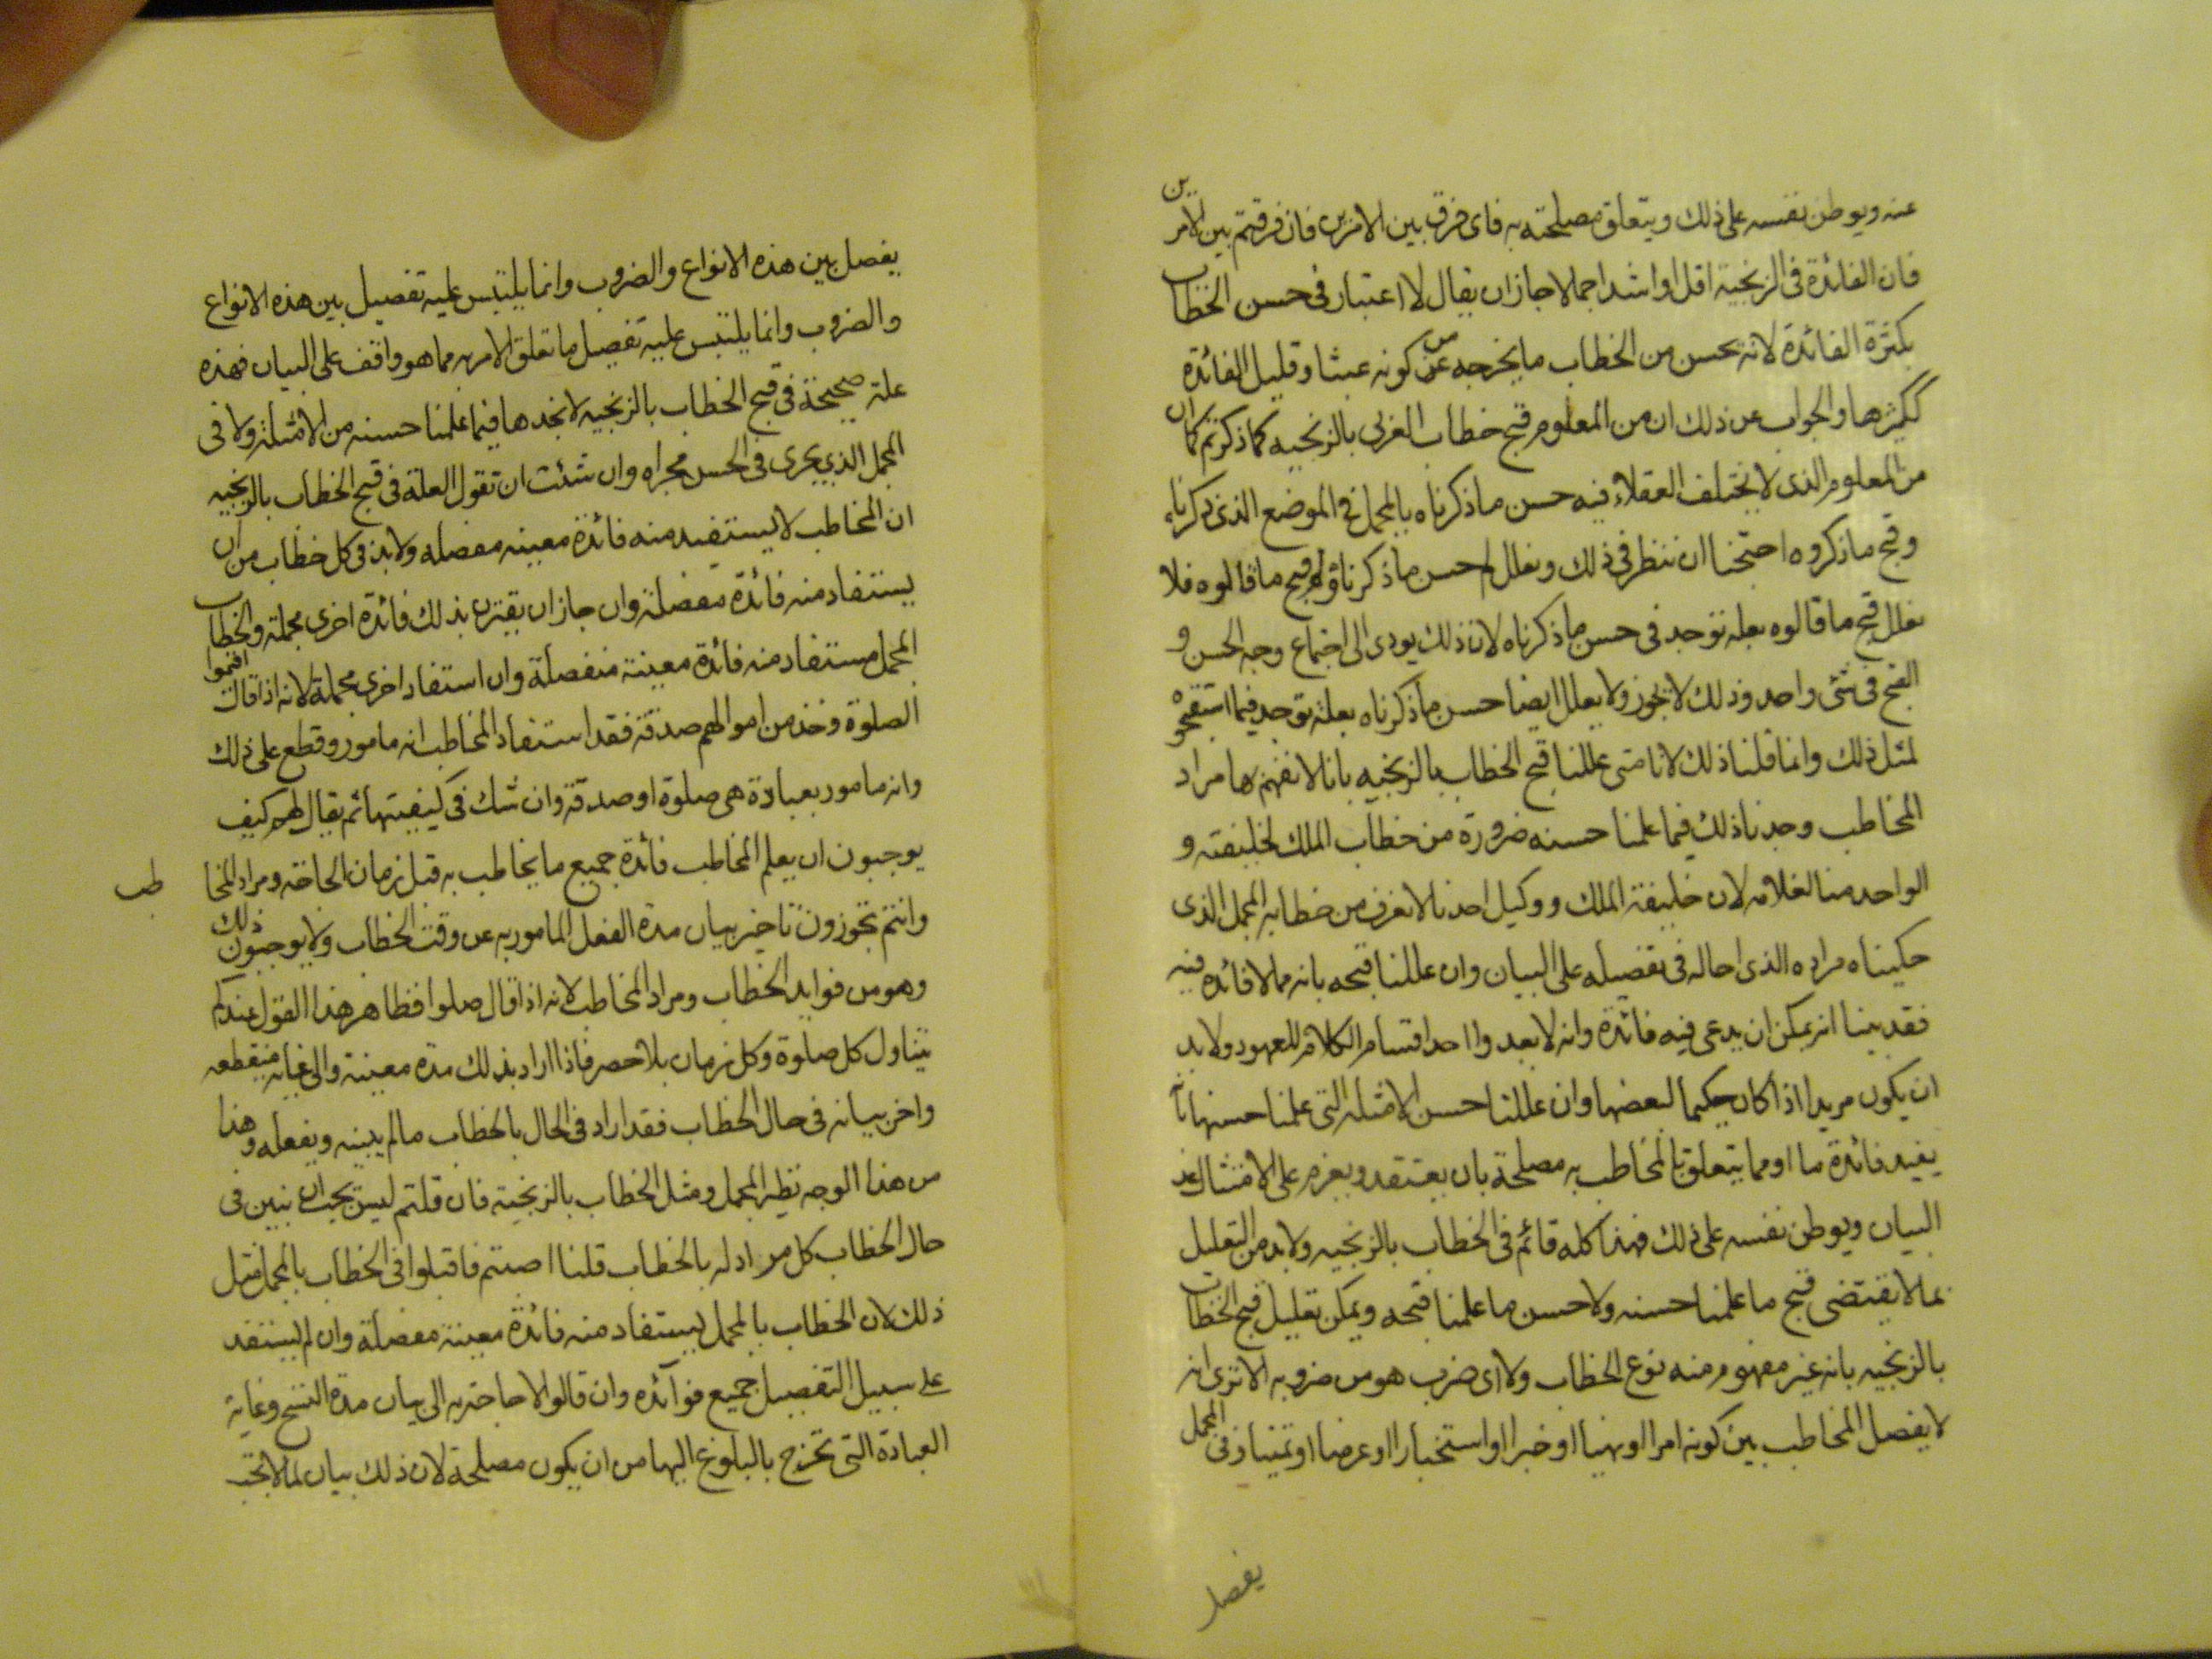 عنه ويوطن نفسه على ذلك ويتعلق مصلحته به فاى فرق بين الامرين فان فرقتم بين الامرين
فان الفائدة فى الزنجية اقل او اشد اجمالا جاز ان يقال لا اعتبار فى حسن الخطاب
بكثرة الفائدة لانه يحسن من الخطاب ما يخرجه عن من كونه عبثا وقليل الفائدة
ككثيرها والجواب عن ذلك ان من المعلوم قبح خطاب العربى بالزنجيه كما ذكرتم كما ان
من المعلوم الذى لا يختلف العقلاء فيه حسن ما ذكرناه بالمجمل فى الموضع الذى ذكرناه
وقبح ما ذكروه احتجنا ان ننظر فى ذلك ونعلل حسن ما ذكرنا وقبح ما قالوه فلا
نعلل قبح ما قالوه بعلة توجد فى حسن ما ذكرناه لان ذلك يودى الى اجتماع وجه الحسن و
القبح فى شئ واحد وذلك لا يجوز ولا يعلل ايضا حسن ما ذكرناه بعلة توجد فيما استقبحوه
لمثل ذلك وانما قلنا ذلك لانا متى عللنا قبح الخطاب بالزنجيه بانا لا نفهم بها مراد
المخاطب وجدنا ذلك فيما علمنا حسنه ضرورة من خطاب الملك لخليفته و
الواحد منا لغلامه لان خليفة الملك ووكيل احدنا لا يعرف من خطابه المجمل الذى
حكيناه مراده الذى احاله فى تفصيله على البيان وان عللنا قبحه بانه مما لا فائدة فيه
فقد بينا انه يمكن ان يدعى فيه فائدة وانه لا بعد وااحد اقسام الكلام المعهود ولا بد
ان يكون مريدا اذا كان حكيما لبعضها وان عللنا حسن الامثلة التى علمنا حسنها بانه
يفيد فائدة ما او مما يتعلق بالمخاطب به مصلحة بان يعتقد ويعزم على الامتثال عند
البيان ويوطن نفسه على ذلك فهذا كله قائم فى الخطاب بالزنجيه ولا بد من التعليل
بما لا يقتضى قبح ما علمنا حسنه ولا حسن ما علمنا قبحه ويمكن تعليل قبح الخطاب
بالزنجيه بانه غير مفهوم منه نوع الخطاب ولا اى ضرب هو من ضروبه الا ترى انه
لا يفصل المخاطب بين كونه امرا او نهيا او خبرا او استخبارا او عرضا او تمنيا وفى المجمل
يفصل
يفصل بين هذه الانواع والضروب وانما يلتبس عليه تفصيل بين هذه الانواع
والضروب وانما يلتبس عليه تفصيل ما تعلق الامر به مما هو واقف على البيان فهذه
علة صحيحة فى قبح الخطاب بالزنجيه لا نجدها فيما علمنا حسنه من الامثلة ولا فى
المجمل الذى يجرى فى الحسن مجراه وان شئت ان تقول العلة فى قبح الخطاب بالزنجيه
ان المخاطب لا يستفيد منه فائدة معينه مفصله ولا بد فى كل خطاب من ان
يستفاد منه فائدة مفصلة وان جاز ان يقترن بذلك فائدة اخرى مجملة والخطاب
المجمل مستفاد منه فائدة معينة منفصلة وان استفاد اخرى مجملة لانه اذا قال اقيموا
الصلوة وخذ من اموالهم صدقة فقد استفاد المخاطب انه مامور وقطع على ذلك
وانه مامور بعبادة هى صلوة او صدقة وان شك فى كيفيتها ثم يقال لهم كيف
يوجبون ان يعلم المخاطب فائدة جميع ما يخاطب به قبل زمان الحاجة ومراد المخا طب
وانتم تجوزون تاخير بيان مدة الفعل المامور به عن وقت الخطاب ولا يوجبون ذلك
وهو من فوايد الخطاب ومراد المخاطب لانه اذا قال صلوا فظاهر هذا القول عندكم
يتناول كل صلوة وكل زمان بلا حصر فاذا اراد بذلك مدة معينة والى غاية منقطعه
واخر بيانه فى حال الخطاب فقد اراد فى الحال بالخطاب ما لم يبينه ويفعله وهذا
من هذا الوجه نظير المجمل ومثل الخطاب بالزنجية فان قلتم ليس يجب ان نبين فى
حال الخطاب كل مراد له بالخطاب قلنا اصبتم فاقبلوا فى الخطاب بالمجمل مثل
ذلك لان الخطاب بالمجمل يستفاد منه فائدة معينة مفصلة وان لم يستفد
على سبيل التفصيل جميع فوائده وان قالوا لا حاجة به الى بيان مدة النسخ وغاية
العبادة التى تخرج بالبلوغ اليها من ان يكون مصلحة لان ذلك بيان لما لا يجب